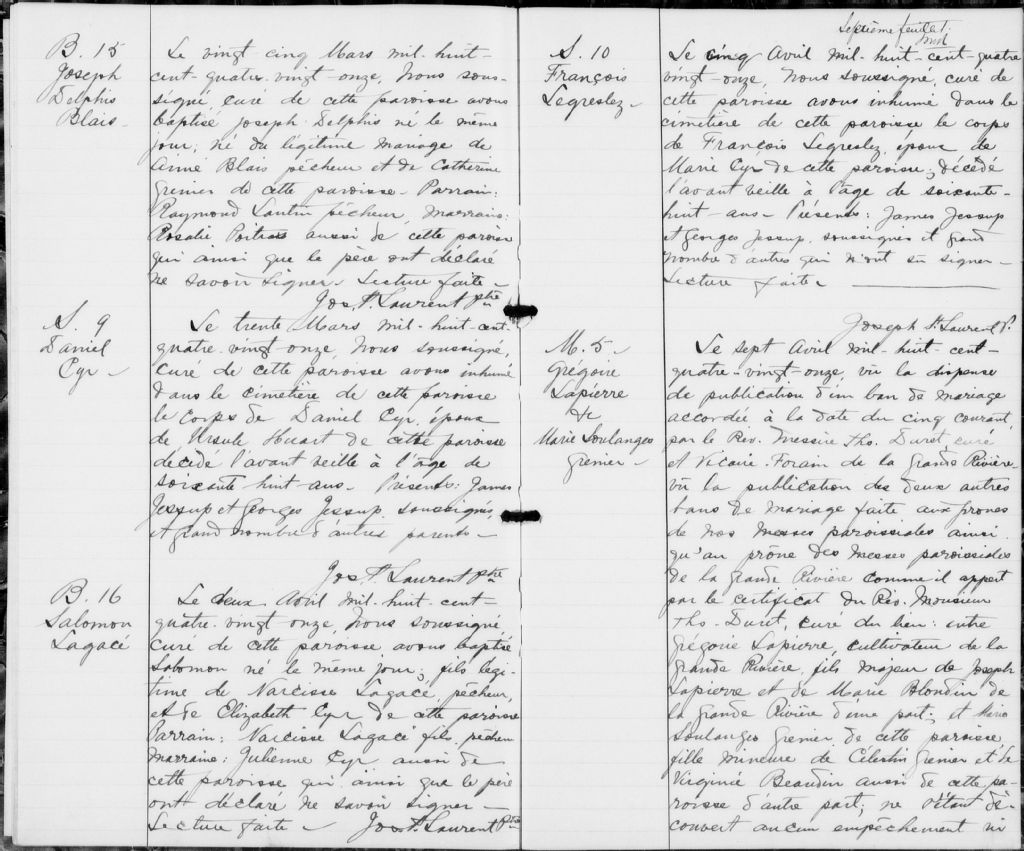 B. 15
Joseph
Delphis
Blais -
Le vingt cinq Mars mil-huit-
cent-quatre-vingt onze, Nous sous-
signé, curé de cette paroisse avons
baptisé Joseph Delphis né le même
jour, né du légitime mariage de
Aimé Blais pêcheur et de Catherine
Grenier de cette paroisse - Parrain:
Raymond Lantin pêcheur, Marraine:
Rosalie Poitras aussi de cette paroisse
qui ainsi que le père ont déclaré
ne savoir signer - Lecture faite -
Jos. St. Laurent ptre
S. 9
Daniel
Cyr -
Le trente Mars mil-huit-cent-
quatre-vingt-onze, Nous soussigné,
curé de cette paroisse avons inhumé
dans le cimetière de cette paroisse
le corps de Daniel Cyr, époux
de Ursule Huart de cette paroisse
décédé l'avant veille à l'âge de
soixante-huit-ans - Présents: James
Jessup et Georges Jessup, soussignés,
et grand nombre d'autres parents -
Jos. St. Laurent ptre
B. 16
Salomon
Lagacé
Le deux Avril mil-huit-cent-
quatre-vingt onze, Nous soussigné
curé de cette paroisse, avons baptisé
Salomon né le même jour; fils légi-
time de Narcisse Lagacé, pêcheur,
et de Elizabeth Cyr de cette paroisse
Parrain: Narcisse Lagacé fils, pêcheur
Marraine: Julienne Cyr aussi de
cette paroisse, qui ainsi que le père
ont déclaré ne savoir signer -
Lecture faite - Jos. St. Laurent Ptre
Septième feuillet
S. 10
François
Legreslez -
Le cinq Avril mil-huit-cent-quatre
vingt-onze, Nous soussigné, curé de
cette paroisse avons inhumé dans le
cimetière de cette paroisse le corps
de François Legreslez, époux de
Marie Cyr de cette paroisse, décédé
l'avant veille à l'âge de soixante-
huit-ans - Présents: James Jessup
et Georges Jessup, soussignés et grand
nombre d'autres qui n'ont su signer -
Lecture faite -
Joseph St. Laurent P.
M. 5 -
Grégoire
Lapierre
&
Marie Soulanges
Grenier -
Le sept Avril mil-huit-cent-
quatre-vingt-onze, vu la dispense
de publication d'un ban de mariage
accordée à la date du cinq courant,
par le Rév. Messire Tho. Duret, curé
et Vicaire-Forain de la Grande Rivière -
vu la publication des deux autres
bans de mariage faite aux prônes
de nos Messes paroissiales ainsi
qu'au prône des Messes paroissiales
de la Grande Rivière comme il appert
par le certificat du Rév. Monsieur
Tho. Duret, curé du lieu: entre
Grégoire Lapierre, cultivateur de la
Grande Rivière, fils majeur de Joseph
Lapierre et de Marie Blondin de
la Grande Rivière d'une part; et Marie
Soulanges Grenier de cette paroisse,
fille mineure de Célestin Grenier et de
Virginie Beaudin aussi de cette pa-
roisse d'autre part; ne s'étant dé-
couvert aucun empêchement ni